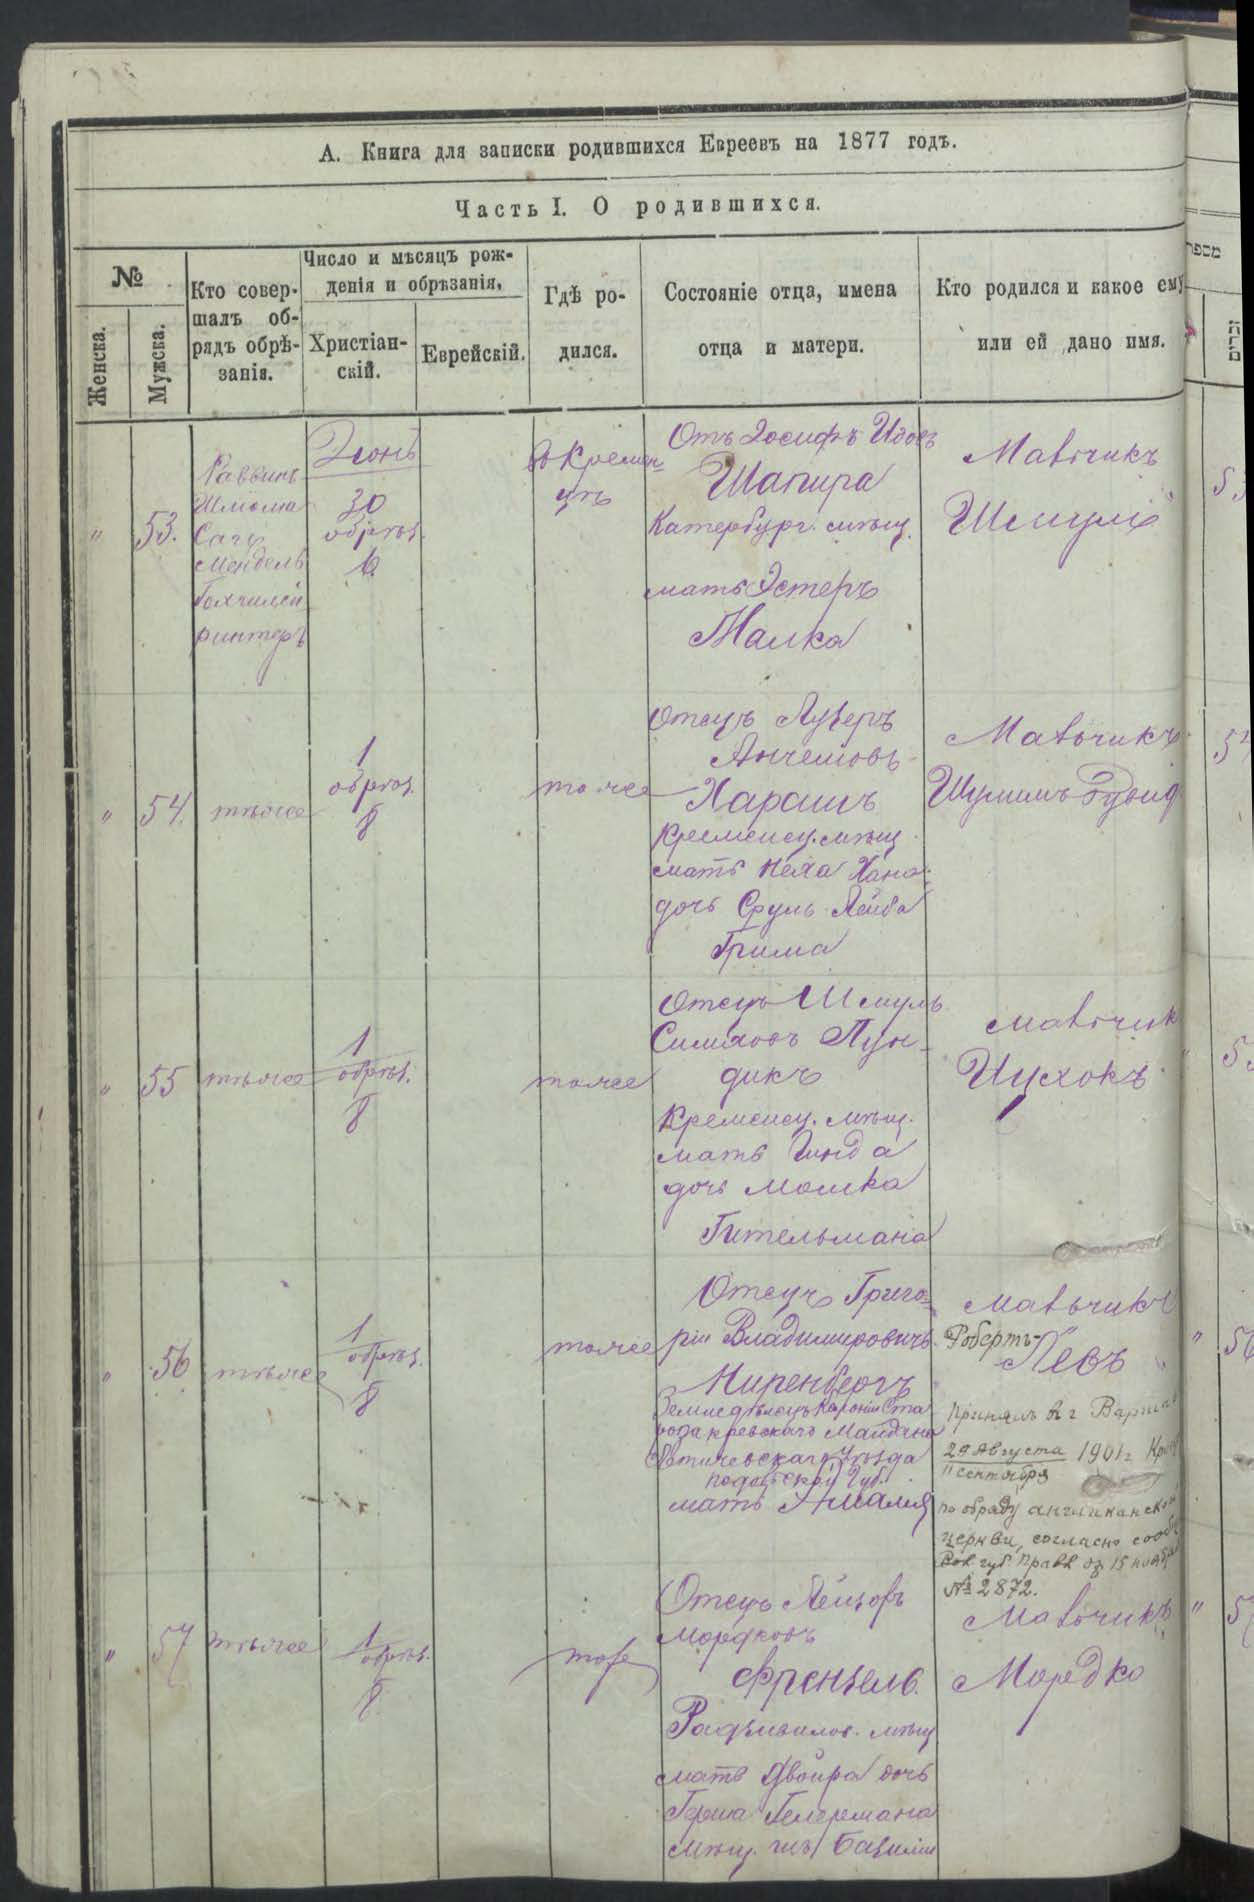 А. Книга для записки родившихся Евреевъ на 1877 годъ.
Часть I. О родившихся.
№
Женска.
Мужска.
Кто совер-
шалъ об-
рядъ обрѣ-
занія.
Число и мѣсяцъ рож-
денія и обрѣзанія,
Христіан-
скій.
Еврейскій.
Гдѣ ро-
дился.
Состояніе отца, имена
отца и матери.
Кто родился и какое ему
или ей дано имя.
מספר
זכרים
" 53.
Раввинъ
Шлиома
Мендель
ринтеръ
Іюнь
30
обрѣз.
6
В Кремен-
цѣ
Отъ Іосифъ Идовъ
Шапира
Катербург. мѣщ.
мать Эстеръ
Малка
Мальчикъ
Шмуль
53
" 54.
тѣже
1
обрѣз.
8
тоже
Отецъ Лузеръ
Анчеловъ
Харашъ
Кременец. мѣщ.
мать Неха Хана
дочь Сруль Лейба
Грима
Мальчикъ
" 55
тѣже
1
обрѣз.
8
тоже
Отецъ Шмуль
Симховъ Пун-
дикъ
Кременец. мѣщ.
мать Гинда
дочь Мошка
Гительмана
Мальчик
Ицхокъ
" 56
тѣже
1
обрѣз.
8
тоже
Отецъ Григо-
рій Владимировичъ
Ниренбергъ
Земледѣлецъ Колоніи Ста
розакревскаго Майдана
Летичевскаго Уѣзда
Подольской Губ.
мать Амалія
Мальчикъ
Робертъ-
Левъ
Принялъ въ г Варша
29 Августа 1901 г
11 сентября
по обряду англиканской
церкви, согласно сооб
Вол. губ. Правл. от 15 ноября
№ 2872.
" 56
" 57
тѣже
1
обрѣз.
8
тоже
Отецъ Лейзоръ
Мордковъ
Френзель
Радзивилов. мѣщ
мать Двойра дочь
Герша Гелермана
мѣщ. изъ Базаліи
Мальчикъ
Мордко
" 57